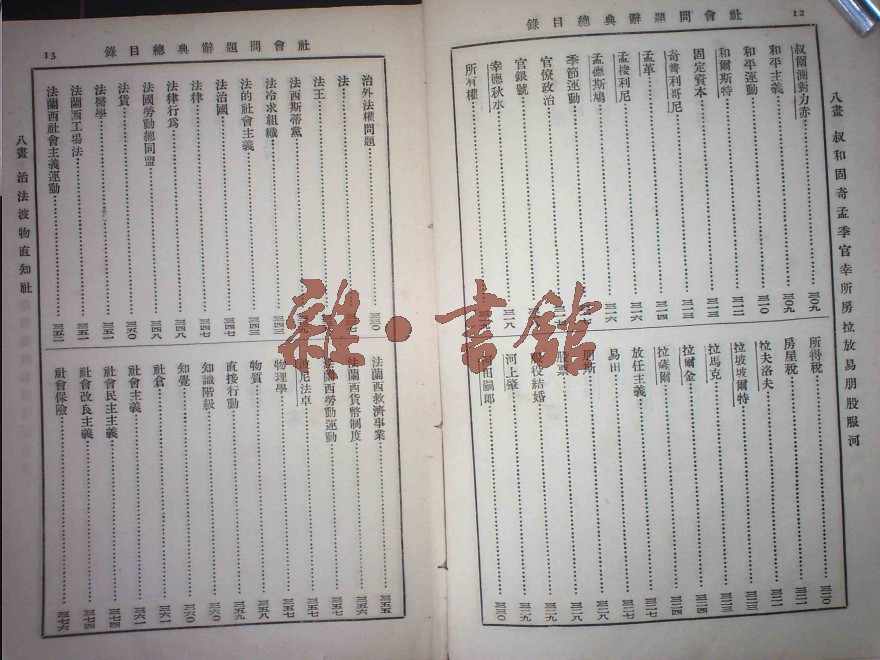 12
社會問題辭典總目錄
八畫 叔和固奇孟季官幸所房拉放易朋股服河
叔爾測對力赤 三〇九
和平主義 三〇九
和平運動 三一〇
和爾斯特 三一二
固定資本 三一三
奇普利哥尼 三一三
孟革 三一四
孟梭利尼 三一六
孟德斯鳩 三一六
季節運動
官僚政治
官銀號
幸德秋水 三一八
所有權
所得稅 三二〇
房屋稅 三二一
拉夫洛夫 三二二
拉坡坡爾特 三二三
拉馬克 三二三
拉爾金 三二四
拉薩爾 三二四
放任主義 三二七
易田 三二七
朋斯 三二八
股票 三二八
服役結婚 三二九
河上肇 三二九
田嗣郎 三三〇
社會問題辭典總目錄
13
治外法權問題 三三〇
法
法王
法西斯蒂黨
法冷求組織 三四三
法的社會主義 三四三
法治國 三四七
法律 三四七
法律行爲 三四八
法國勞動總同盟 三四八
法貨 三五〇
法醫學 三五一
法蘭西工場法 三五一
法蘭西社會主義運動 三五二
法蘭西救濟事業 三五五
法蘭西貨幣制度 三五六
法蘭西勞動運動 三五七
尼法卓 三五七
物理學 三五七
物質 三五八
直接行動 三五九
知識階級 三六〇
知覺 三六〇
社倉 三六一
社會主義 三六一
社會民主主義 三七四
社會改良主義 三七四
社會保險 三七六
八畫 治法波物直知社
雜·書館